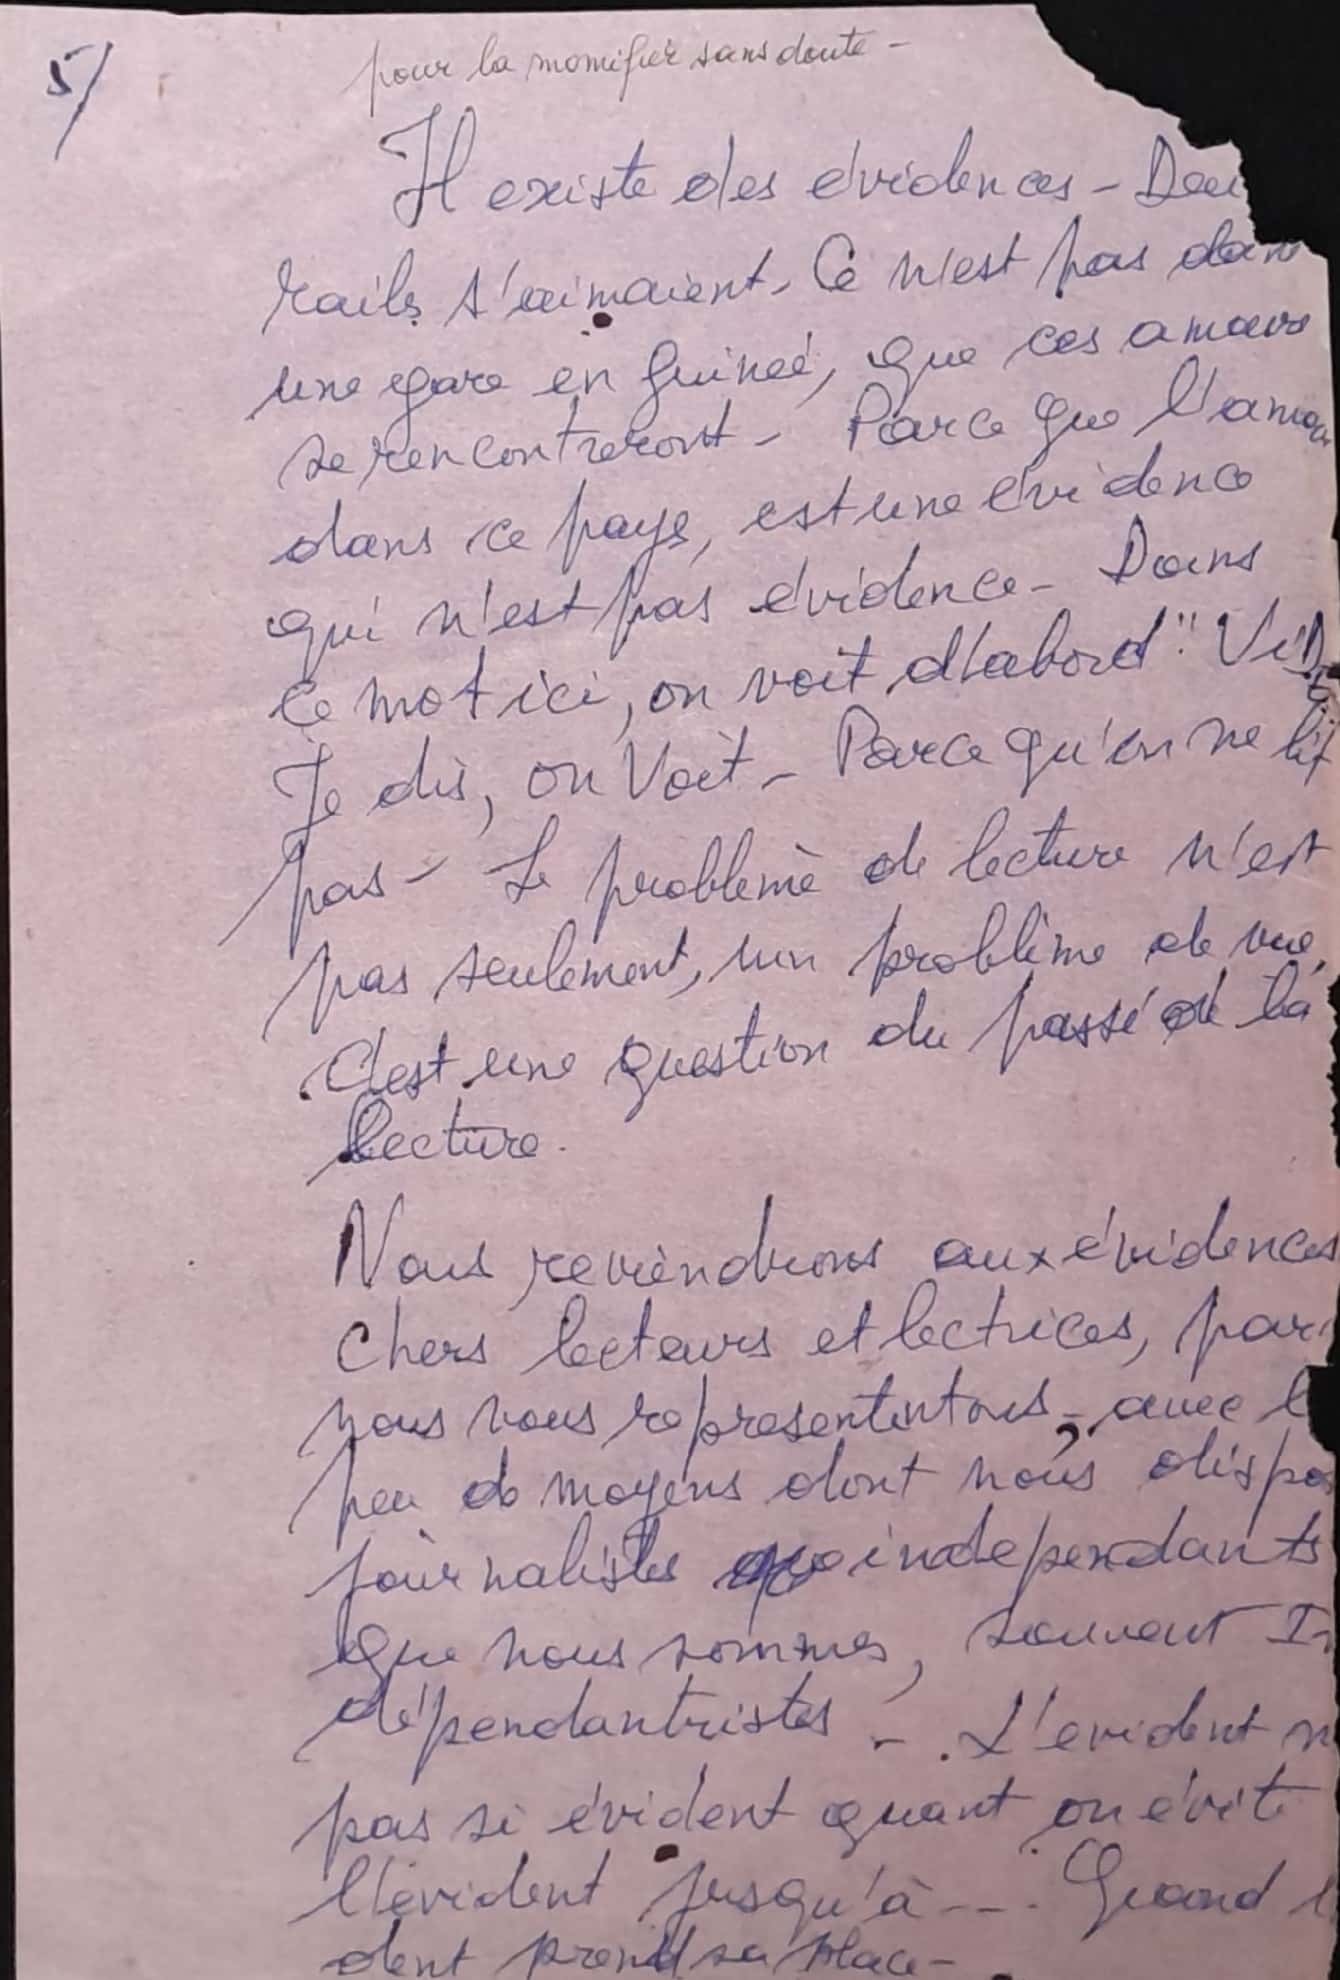 5/
pour la momifier sans doute -
Il existe des évidences - Deu
rails s'aimaient - Ce n'est pas dan
une gare en guineé, que ces amours
se rencontreront - Parce que l'amou
dans ce pays, est une évidence
qui n'est pas évidence - Dans
ce mot ici, on voit d'abord "ViDE
Je dis, on Voit - Parce qu'on ne lit
pas - Le problème de lecture n'est
pas seulement, un problème de vue,
C'est une question du passé de la
lecture.
Nous reviendrons aux évidences
chers lecteurs et lectrices, par
nous vous represententons - avec l
peu de moyens dont nous dispo
journalistes independants
que nous sommes, souvent In
dépendantristes - L'evident n
pas si évident quant on évite
l'évident jusqu'à --- Quand l
dent prend sa place -